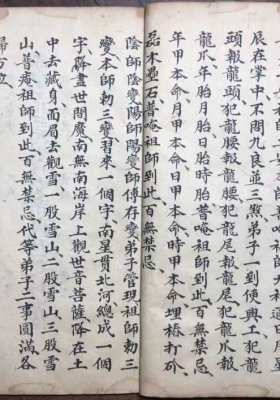 辰在掌中不問九良並三煞弟子一到便興工犯
頭報龍頭犯龍腰報龍腰犯龍尾報龍尾犯龍爪報
龍爪年胎月胎日胎時胎普庵祖師到此百無禁忌
年甲本命月甲本命日甲本命時甲本命埋樁打砂
磊木疊石普庵祖師到此百無禁忌
陰師陰變陽師陽變師傅存變弟子管現祖師勅三
變本師勅三變習來一個字南星貫北河總成一個
字降盡世間魔南無南海岸上觀世音菩薩降在土
中去藏身面眉去觀雪一股雪山二股雪山三股雪
山普庵祖師到此百無禁忌代等弟子二事圓滿各
歸方位